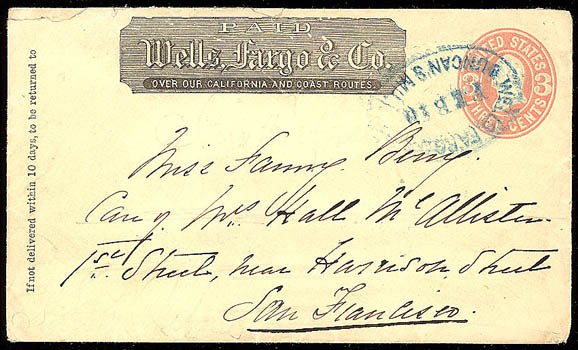 PAID
Wells, Fargo & Co.
OVER OUR CALIFORNIA AND COAST ROUTES.
UNITED STATES
3 3
THREE CENTS
WELLS FARGO
DUNCAN'S MILLS
FEB 10
If not delivered within 10 days, to be returned to
Miss Fanny Berry
Care of Mrs Hall McAllister
1st Street, near Harrison Street
San Francisco.